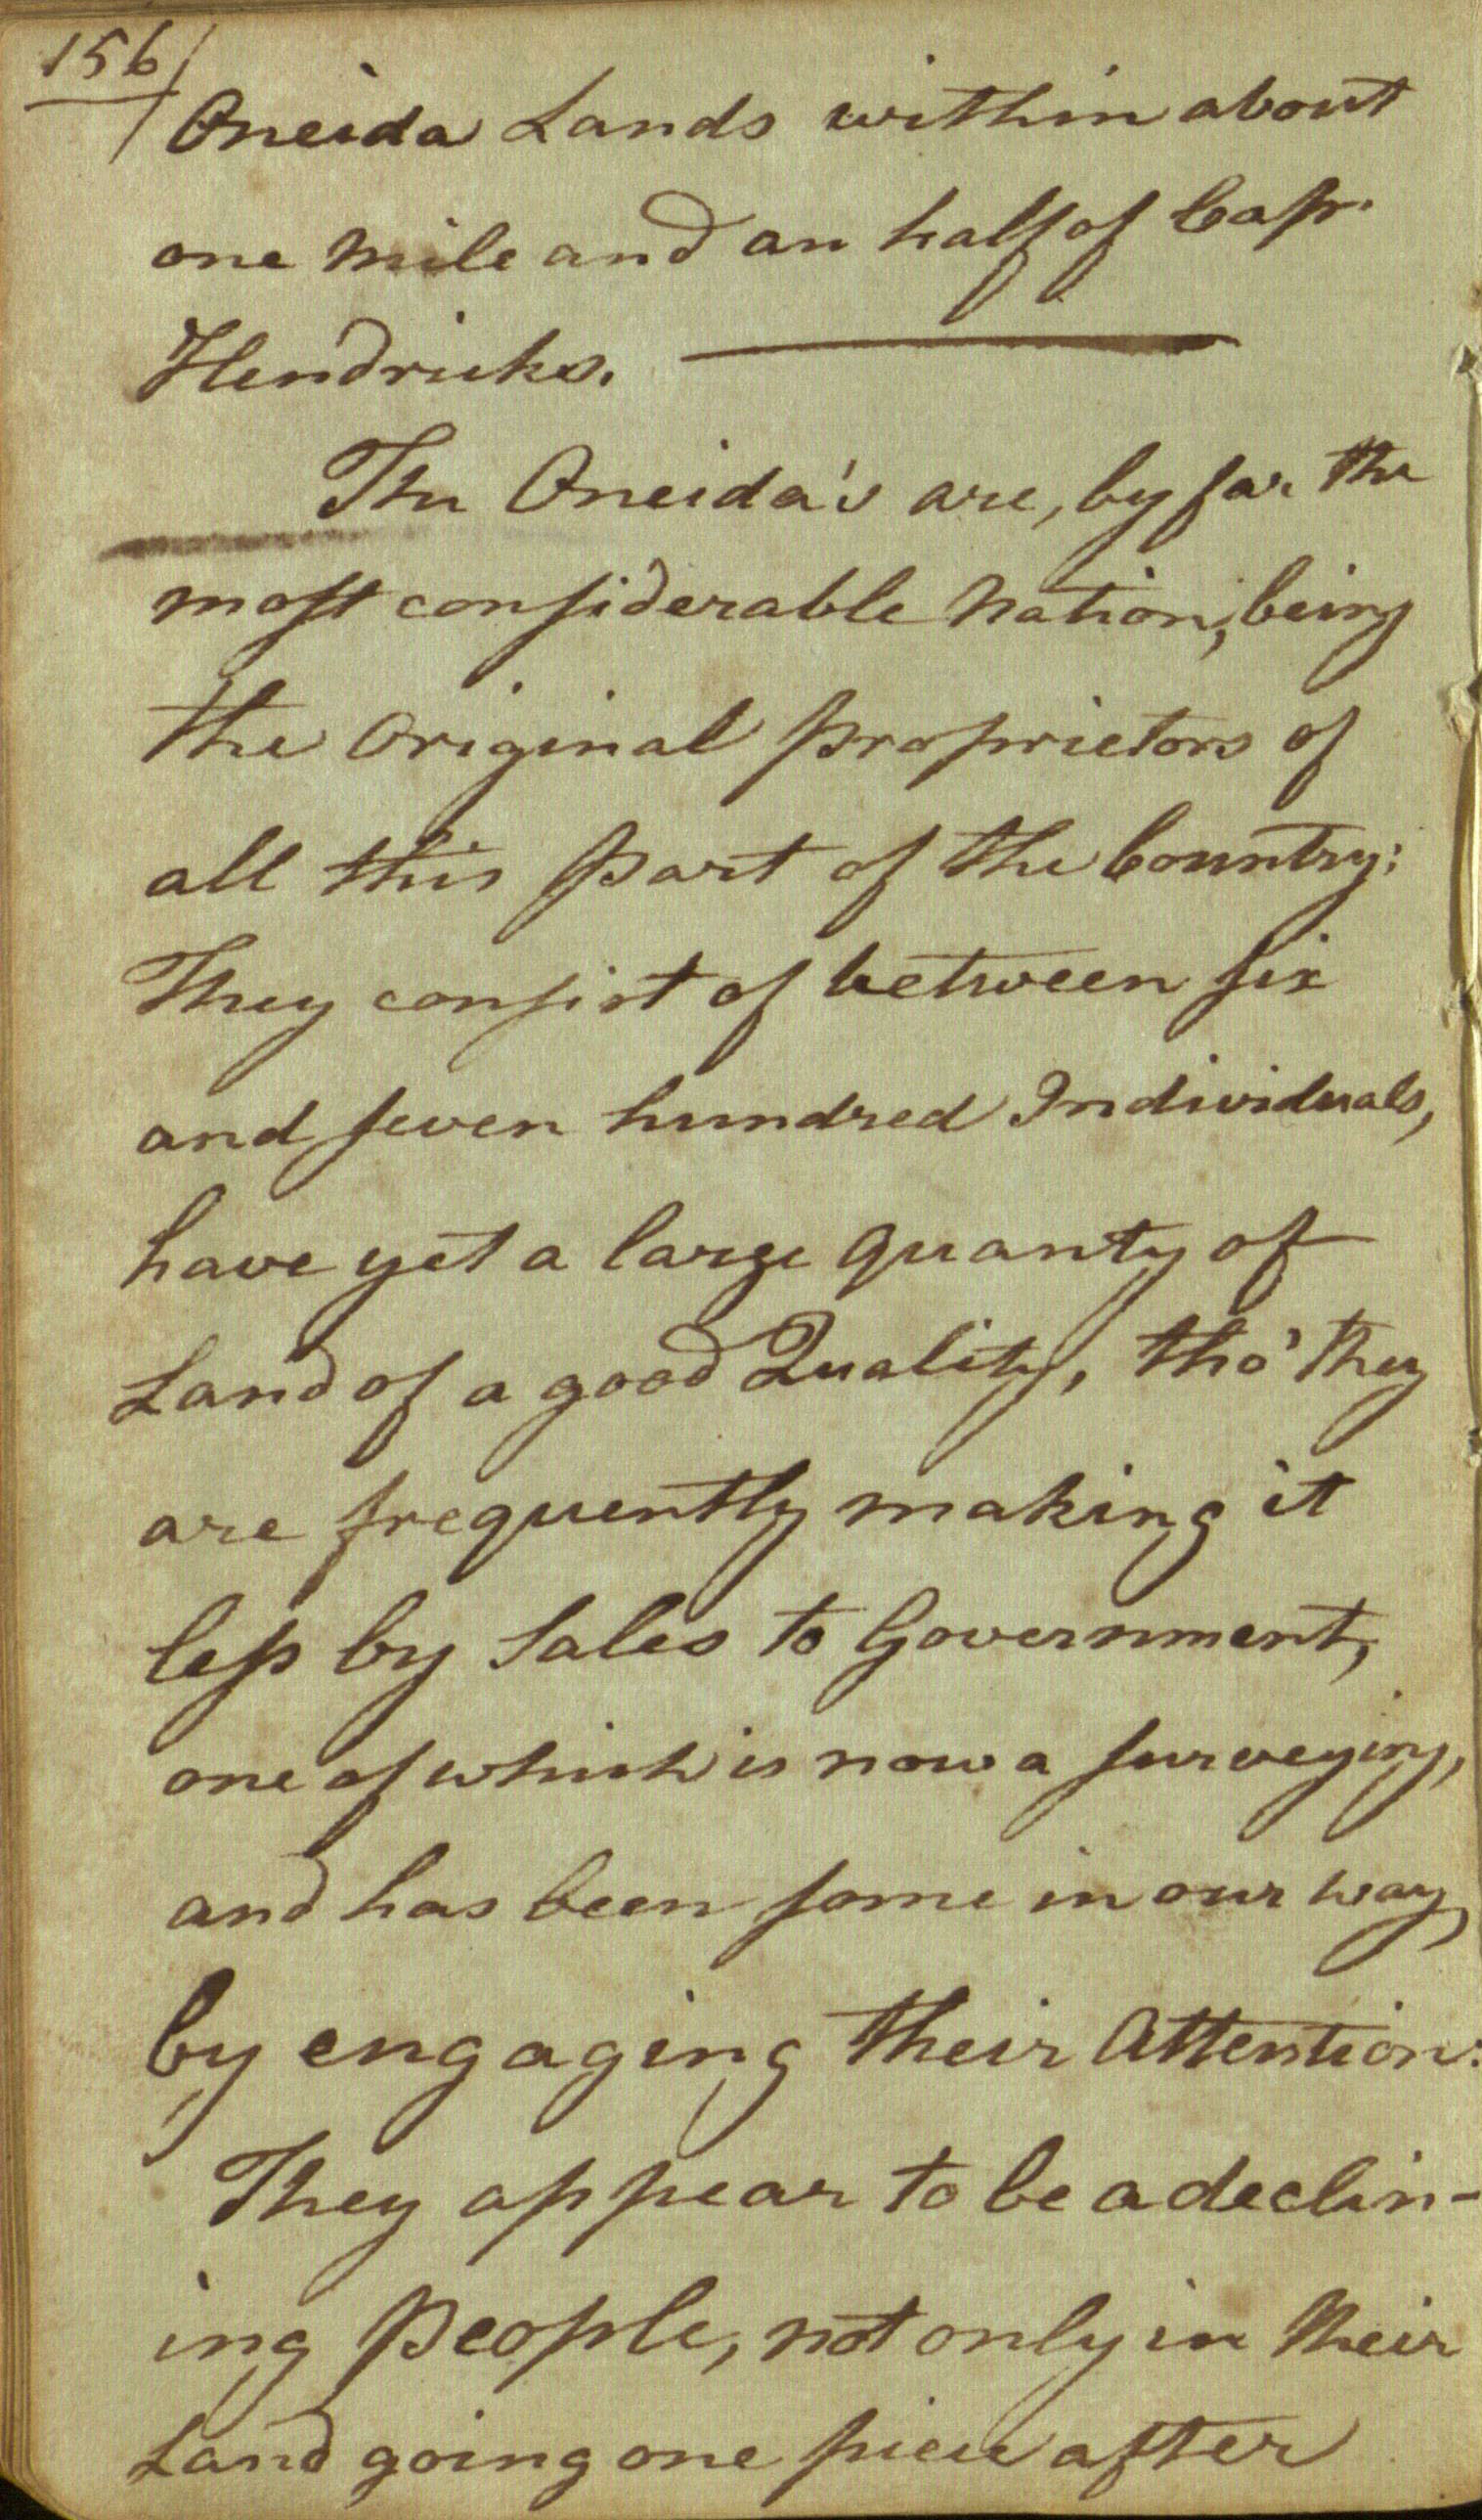 156
Oneida Lands within about
one mile and an half of Cap.
Hendricks.
The Oneida's are, by far the
most considerable Nation, being
the Original Proprietors of
all this Part of the Country:
They consist of between six
and seven hundred Individuals,
have yet a large quanty of
Land of a good Quality, tho' they
are frequently making it
less by Sales to Government,
one of which is now a surveying,
and has been some in our way,
by engaging their Attention:
They appear to be a declin-
ing People, not only in their
Land going one piece after